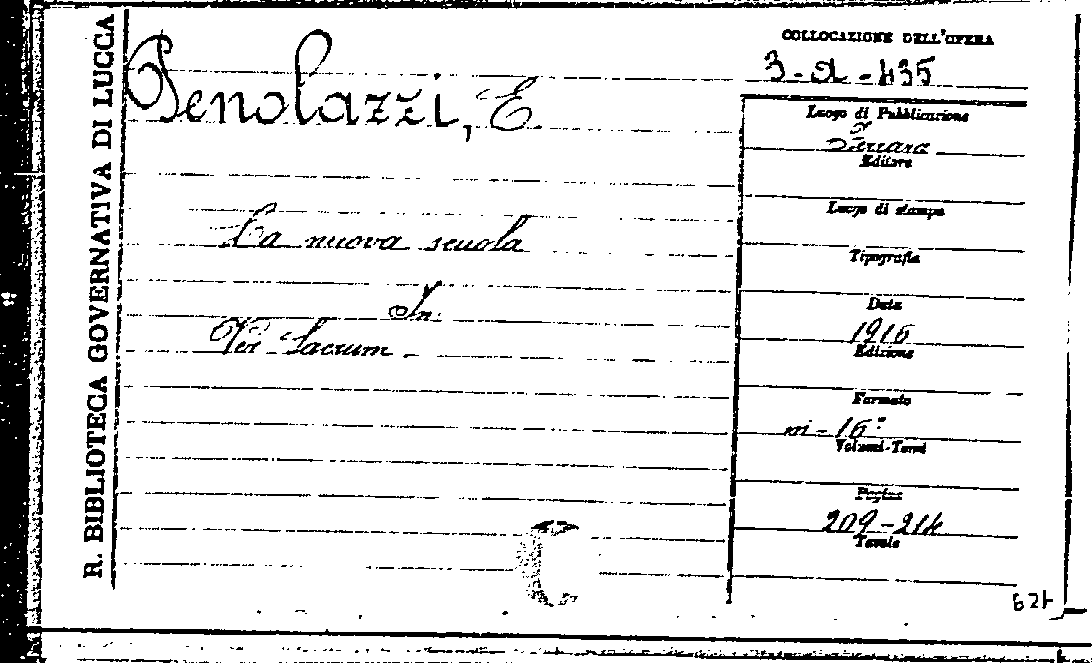 R. BIBLIOTECA GOVERNATIVA DI LUCCA
Penolazzi, E.
La nuova scuola
In:
Ver Sacrum
COLLOCAZIONE DELL'OPERA
3-a-435
Luogo di Pubblicazione
Ferrara
Editore
Luogo di stampa
Tipografia
Data
1916
Edizione
Formato
in-16°
Volumi-Tomi
Pagine
209-214
Tavole